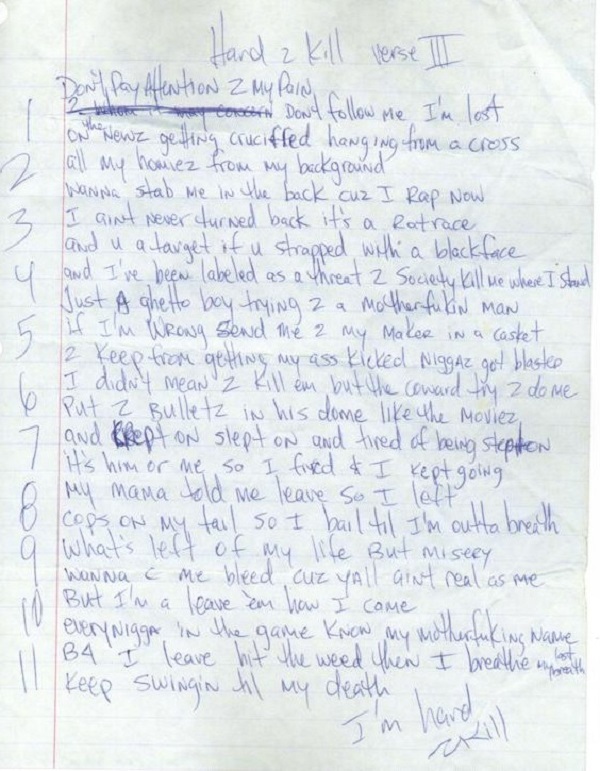 Hard 2 Kill verse III
Don't Pay Attention 2 My Pain,
1 2 whom it may concern Don't follow me I'm lost
on the Newz getting crucified hanging from a cross
2 all my homiez from my background
wanna stab me in the back cuz I Rap Now
3 I aint never turned back it's a Ratrace
and u a target if u strapped with a blackface
4 and I've been labeled as a threat 2 Society Kill me where I stand
Just A ghetto boy trying 2 a motherfukin man
5 if I'm Wrong Send me 2 my Maker in a casket
2 Keep from getting my ass kicked Niggaz got blasted
6 I didn't mean 2 Kill em but the coward try 2 do me
Put 2 Bulletz in his dome like the Moviez
7 and kept on slept on and tired of being stept on
it's him or me so I fired & I kept going
8 My mama told me leave so I left
cops on my tail so I bail til I'm outta breath
9 What's left of my life But misery
wanna c me bleed cuz yall aint real as me
10 But I'm a leave 'em how I came
every nigga in the game Know my motherfuking Name
11 B4 I leave hit the weed then I breathe my last breath
Keep swingin til my death
I'm hard
2 Kill